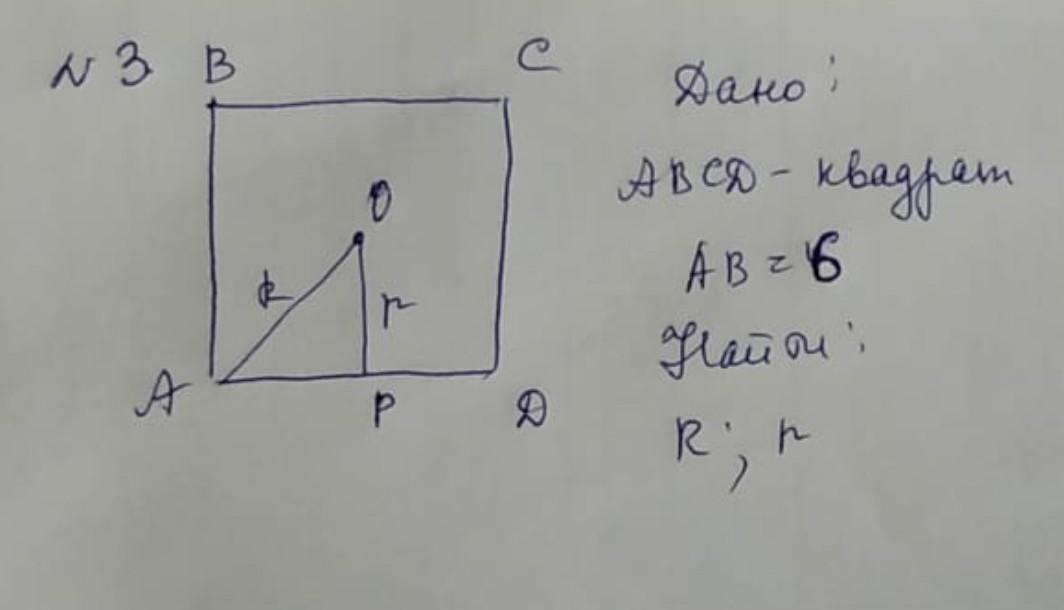 N 3
B
C
Дано:
ABCD - квадрат
O
AB = 6
R
r
Найти:
A
P
D
R; r